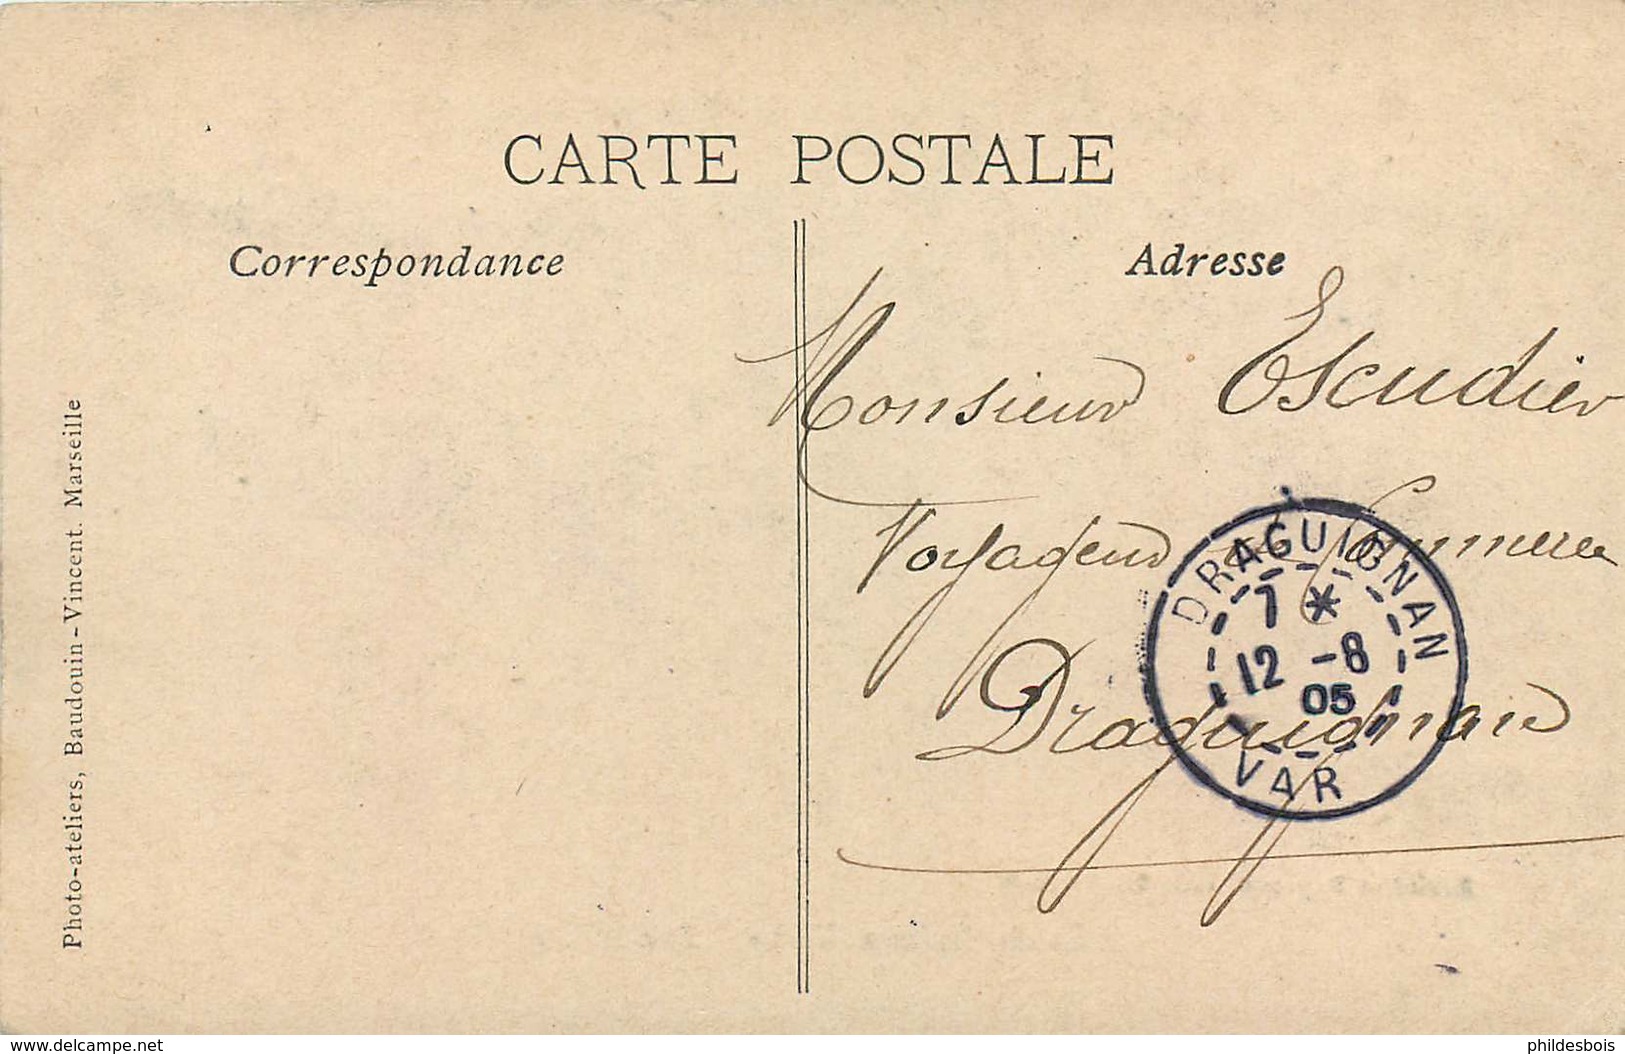 CARTE POSTALE
Correspondance
Adresse
Monsieur Escudier
Voyageur de Commerce
Draguignan
DRAGUIGNAN
7 *
12 -8
05
VAR
Photo-ateliers, Baudouin-Vincent. Marseille
www.delcampe.net
phildesbois